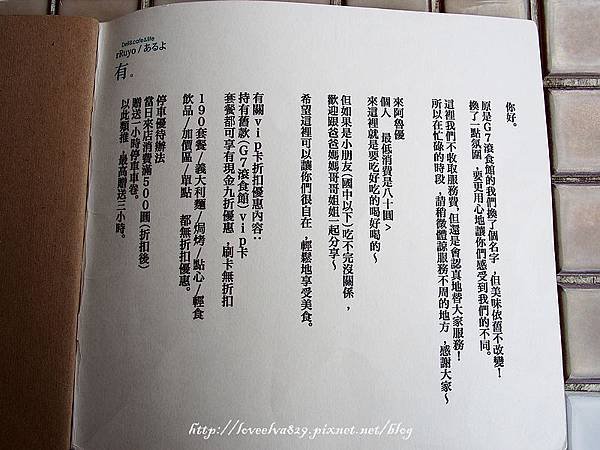 Deli&cafe&life
rRuyo/あるよ
有。
你好。
原是G7滾食館的我們換了個名字，但美味依舊不改變！
換了一點氛圍，要更用心地讓你們感受到我們的不同。
這裡我們不收取服務費，但還是會認真地替大家服務！
所以在忙碌的時段，請稍微體諒服務不周的地方，感謝大家～
來阿魯優
個人 最低消費是八十圓>
來這裡就是要吃好吃的喝好喝的～
但如果是小朋友(國中以下)吃不完沒關係，
歡迎跟爸爸媽媽哥哥姐姐一起分享～
希望這裡可以讓你們很自在，輕鬆地享受美食。
有關vip卡折扣優惠內容：
持有舊款(G7滾食館)vip卡
套餐都可享有現金九折優惠，刷卡無折扣
190套餐/義大利麵/焗烤/點心/輕食
飲品/加價區/單點 都無折扣優惠。
停車優待辦法
當日來店消費滿500圓(折扣後)
贈送一小時停車卷。
以此類推，最高贈送三小時。
http://loveelva829.pixnet.net/blog